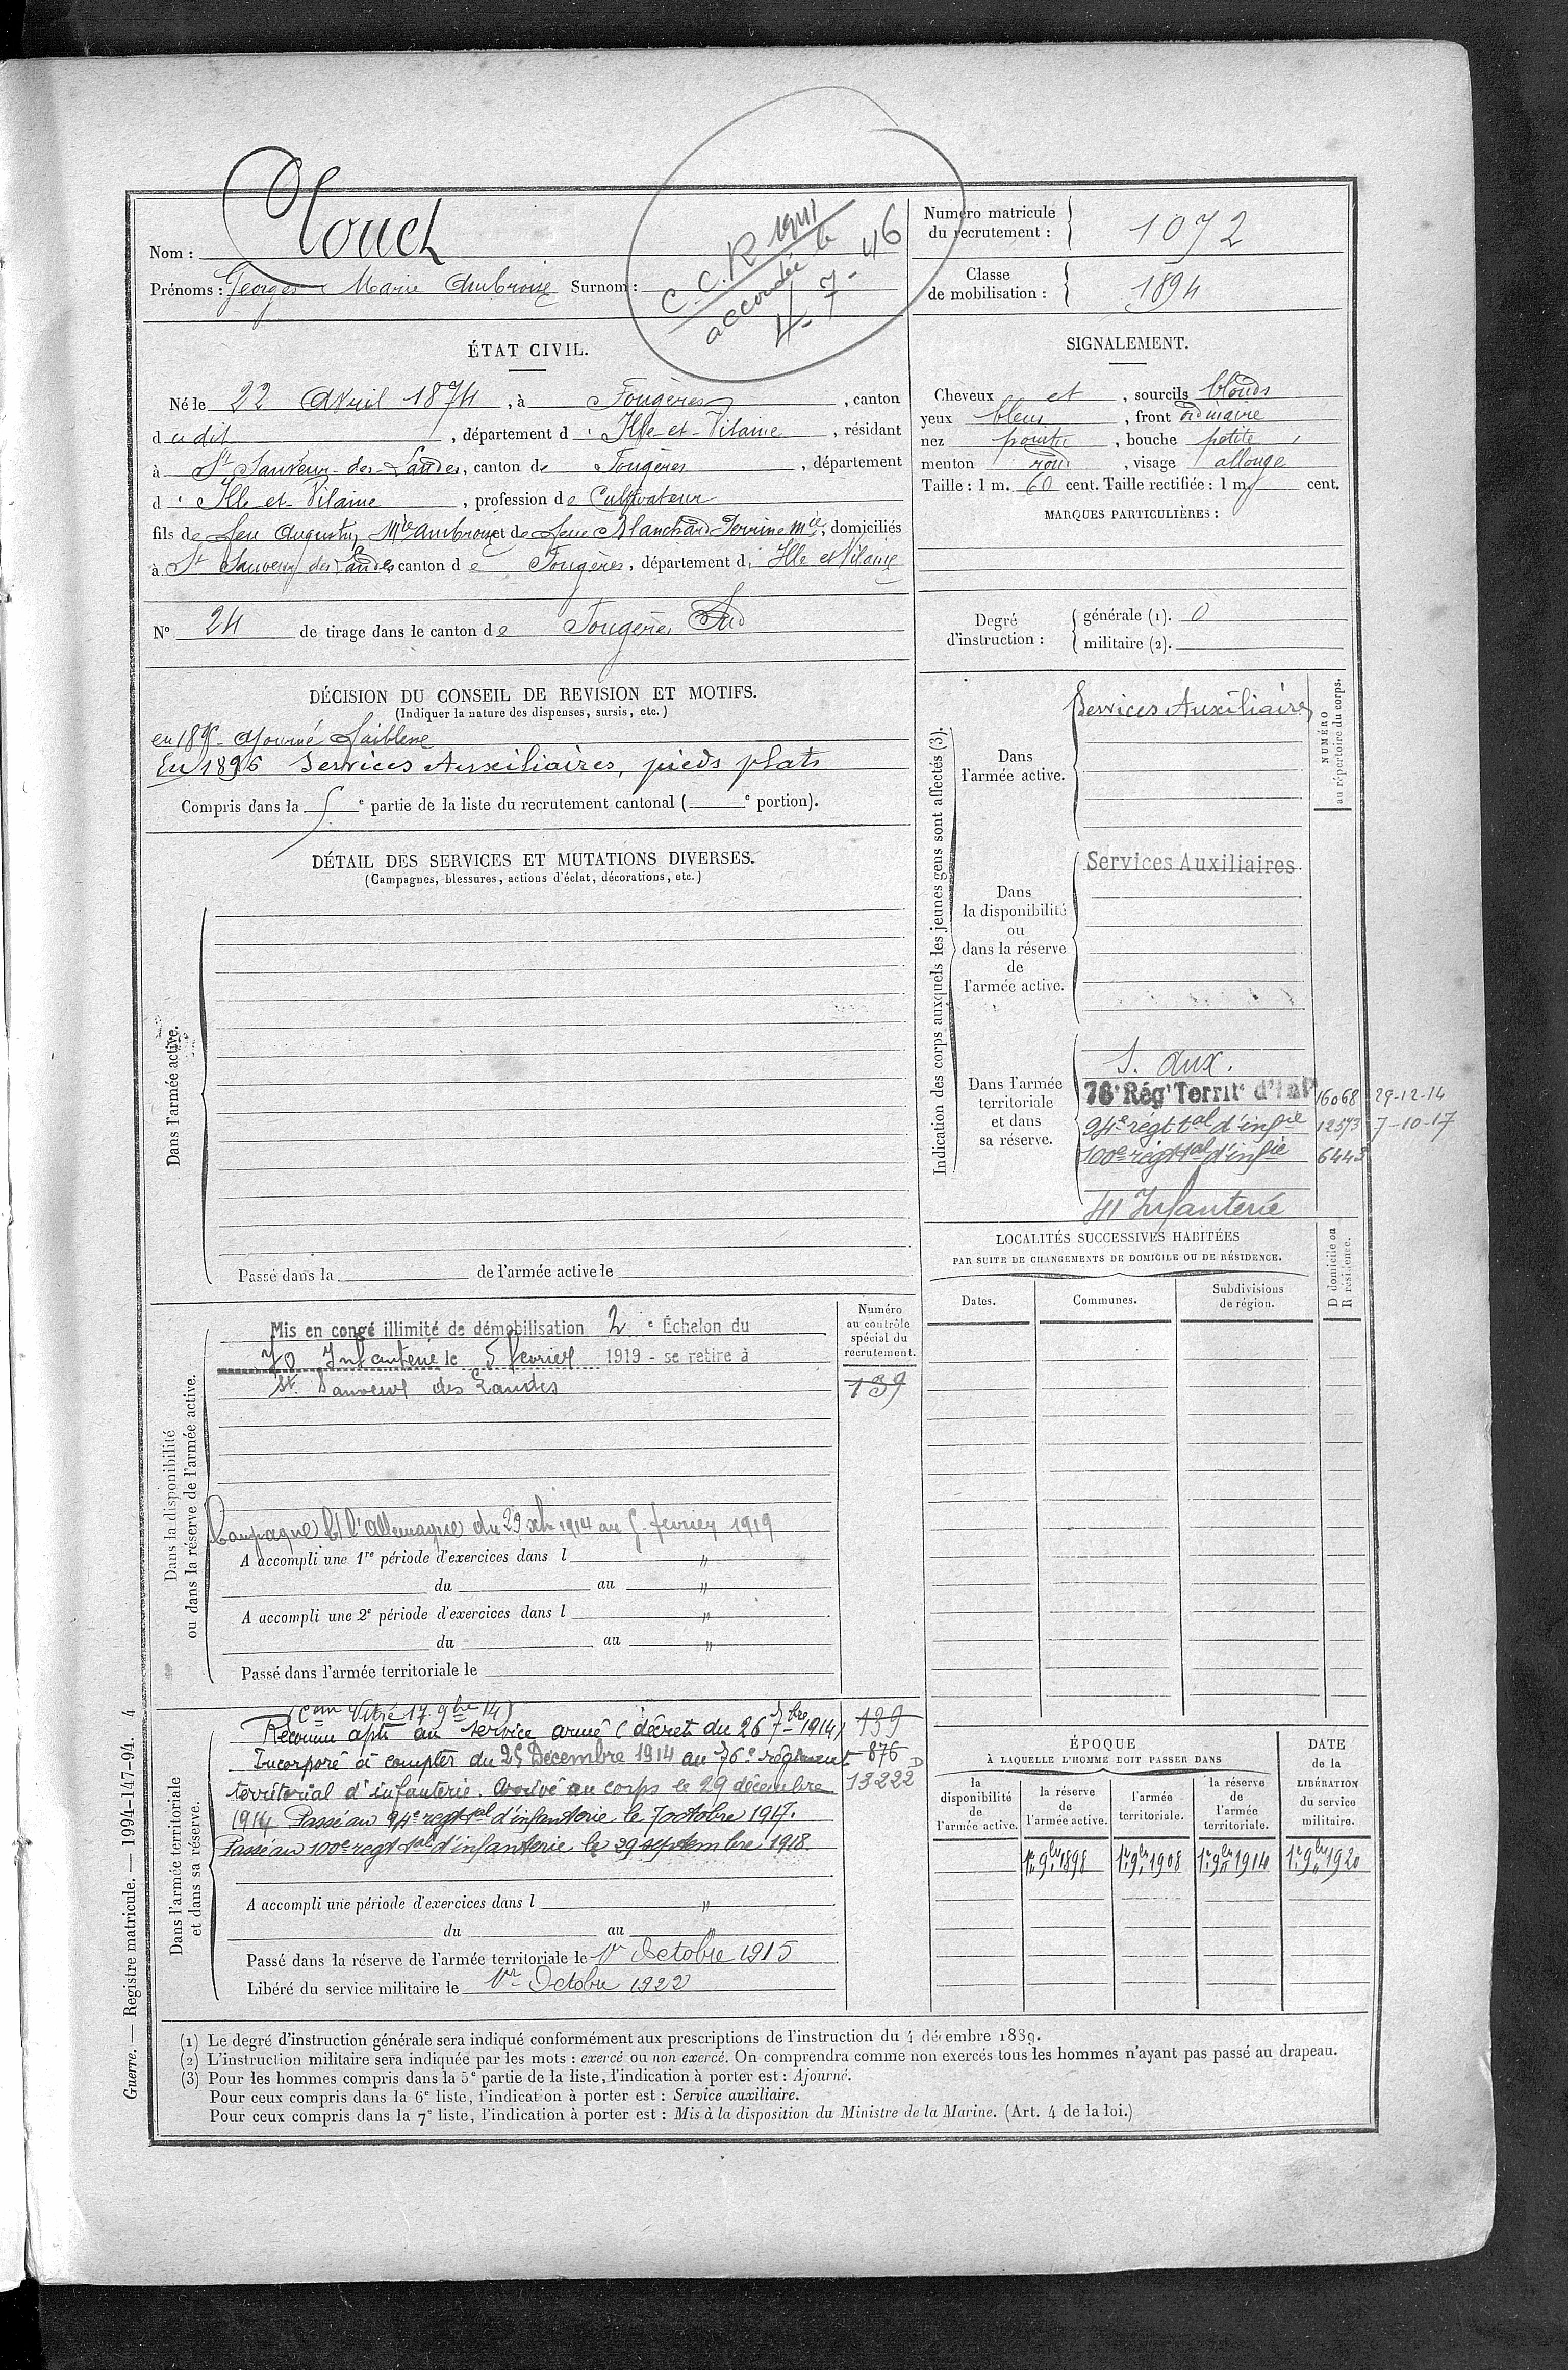 Nom : Clouet
Prénoms : Georges Marie Ambroise Surnom :
C. C. R 1941
accordée le
4-7-46
Numéro matricule du recrutement : 1072
Classe de mobilisation : 1894
ÉTAT CIVIL.
Né le 22 Avril 1874, à Fougères, canton
du dit, département d'Ille-et-Vilaine, résidant
à St Sauveur-des-Landes, canton de Fougères, département
d'Ille-et-Vilaine, profession de Cultivateur
fils de feu Augustin Mie Ambroise et de feue Blanchard Perrine Mie, domiciliés
à St Sauveur des Landes canton de Fougères, département d' Ille et Vilaine
N° 24 de tirage dans le canton de Fougères Sud
SIGNALEMENT.
Cheveux et, sourcils blonds
yeux bleus, front ordinaire
nez pointu, bouche petite,
menton rond, visage allongé
Taille : 1 m. 60 cent. Taille rectifiée : 1 m. cent.
MARQUES PARTICULIÈRES :
Degré d'instruction : générale (1). 0
militaire (2).
DÉCISION DU CONSEIL DE REVISION ET MOTIFS.
(Indiquer la nature des dispenses, sursis, etc.)
en 1895 Ajourné faiblesse
En 1896 Services Auxiliaires, pieds plats
Compris dans la e partie de la liste du recrutement cantonal ( e portion).
DÉTAIL DES SERVICES ET MUTATIONS DIVERSES.
(Campagnes, blessures, actions d'éclat, décorations, etc.)
Dans l'armée active.
Passé dans la de l'armée active le
Indication des corps auxquels les jeunes gens sont affectés (3).
NUMÉRO au répertoire du corps.
Dans l'armée active.
Services Auxiliaires
Dans la disponibilité ou dans la réserve de l'armée active.
Services Auxiliaires
Dans l'armée territoriale et dans sa réserve.
S. aux.
76e Régt Territl d'Infie 16068 29-12-14
94e régt tal d'infie 12573 7-10-17
100e régt tal d'infie 6443
41 Infanterie
LOCALITÉS SUCCESSIVES HABITÉES
PAR SUITE DE CHANGEMENTS DE DOMICILE OU DE RÉSIDENCE.
Dates. Communes. Subdivisions de région. D domicile ou R résidence.
Dans la disponibilité ou dans la réserve de l'armée active.
Numéro au contrôle spécial du recrutement.
Mis en congé illimité de démobilisation 2 e Échelon du
70 Infanterie le 5 février 1919 - se retire à
St. Sauveur des Landes
139
Campagne Ct l'Allemagne du 29 xbre 1914 au 5 février 1919
A accompli une 1re période d'exercices dans l "
du au "
A accompli une 2e période d'exercices dans l "
du au "
Passé dans l'armée territoriale le
Dans l'armée territoriale et dans sa réserve.
(Con Vitré 17. 9bre 14)
Reconnu apte au service armé (décret du 26 7bre 1914) 139
Incorporé à compter du 29 Décembre 1914 au 76e régiment 876
territorial d'infanterie. Arrivé au corps le 29 décembre 13222 D
1914 Passé au 94e régt tal d'infanterie le 7 octobre 1917.
Passé au 100e régt tal d'infanterie le 29 septembre 1918.
A accompli une période d'exercices dans l "
du au "
Passé dans la réserve de l'armée territoriale le 1er Octobre 1915
Libéré du service militaire le 1er Octobre 1922
ÉPOQUE
À LAQUELLE L'HOMME DOIT PASSER DANS
la disponibilité de l'armée active. la réserve de l'armée active. l'armée territoriale. la réserve de l'armée territoriale.
DATE de la LIBÉRATION du service militaire.
1er 9bre 1898 1er 9bre 1908 1er 9bre 1914 1er 9bre 1920
(1) Le degré d'instruction générale sera indiqué conformément aux prescriptions de l'instruction du 4 décembre 1889.
(2) L'instruction militaire sera indiquée par les mots : exercé ou non exercé. On comprendra comme non exercés tous les hommes n'ayant pas passé au drapeau.
(3) Pour les hommes compris dans la 5e partie de la liste, l'indication à porter est : Ajourné.
Pour ceux compris dans la 6e liste, l'indication à porter est : Service auxiliaire.
Pour ceux compris dans la 7e liste, l'indication à porter est : Mis à la disposition du Ministre de la Marine. (Art. 4 de la loi.)
Guerre. — Registre matricule. — 1994-147-94. 4